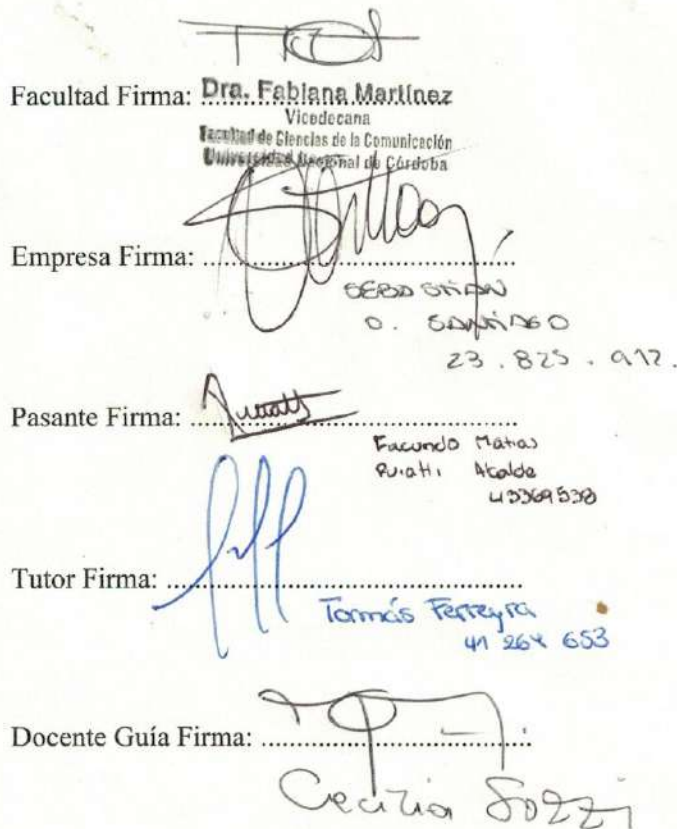 Facultad Firma: ..........................
Dra. Fabiana Martínez
Vicedecana
Facultad de Ciencias de la Comunicación
Universidad Nacional de Córdoba
Empresa Firma: ..........................
SEBASTIÁN
O. SANTIAGO
23.825.912.
Pasante Firma: ..........................
Facundo Matias
Alcalde
Tutor Firma: ..........................
Tomás Ferreyra
41 264 653
Docente Guía Firma: ..........................
Cecilia Sozzi